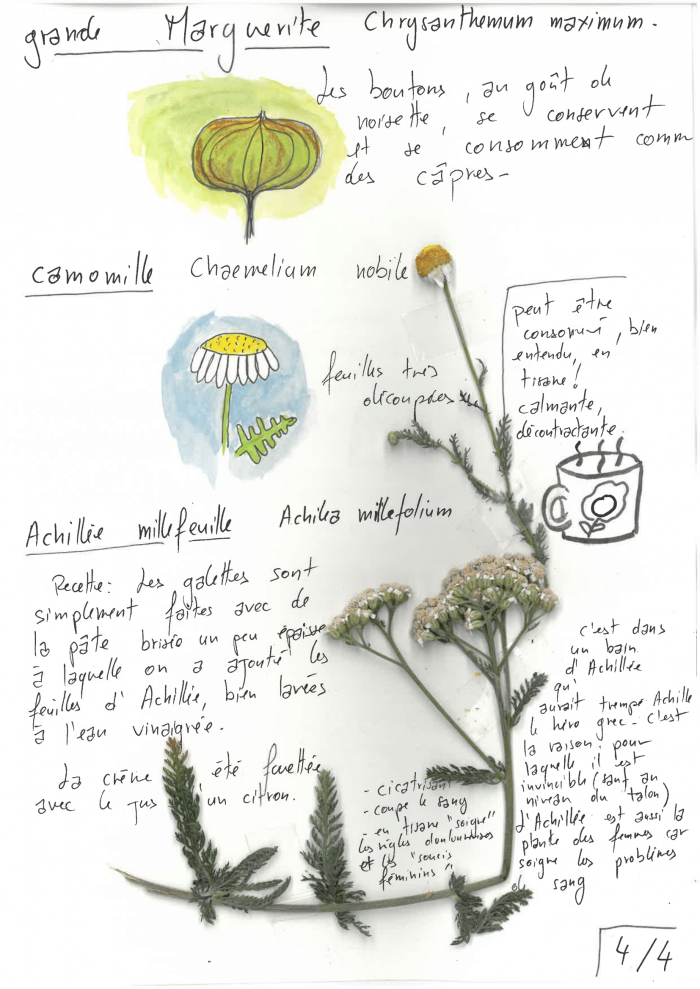 grande Marguerite Chrysanthemum maximum.
Les boutons, au goût de
noisette, se conservent
et se consomment comm
des câpres-
camomille Chaemelium nobile
feuilles très
découpées
peut être
consommé, bien
entendu, en
tisane!
calmante,
décontractante.
Achillée millefeuille Achilea millefolium
Recette: Les galettes sont
simplement faites avec de
la pâte brisée un peu épaisse
à laquelle on a ajouté les
feuilles d'Achillée, bien lavées
à l'eau vinaigrée.
La crème été fouettée
avec le jus d'un citron.
- cicatrisant
- coupe le sang
- en tisane "soigne"
les règles douloureuses
et les "soucis
féminins"
c'est dans
un bain
d'Achillée
qu'
aurait trempé Achille
le héro grec - c'est
la raison pour
laquelle il est
invincible (sauf au
niveau du talon)
l'Achillée est aussi la
plante des femmes car
soigne les problèmes
de sang
4/4